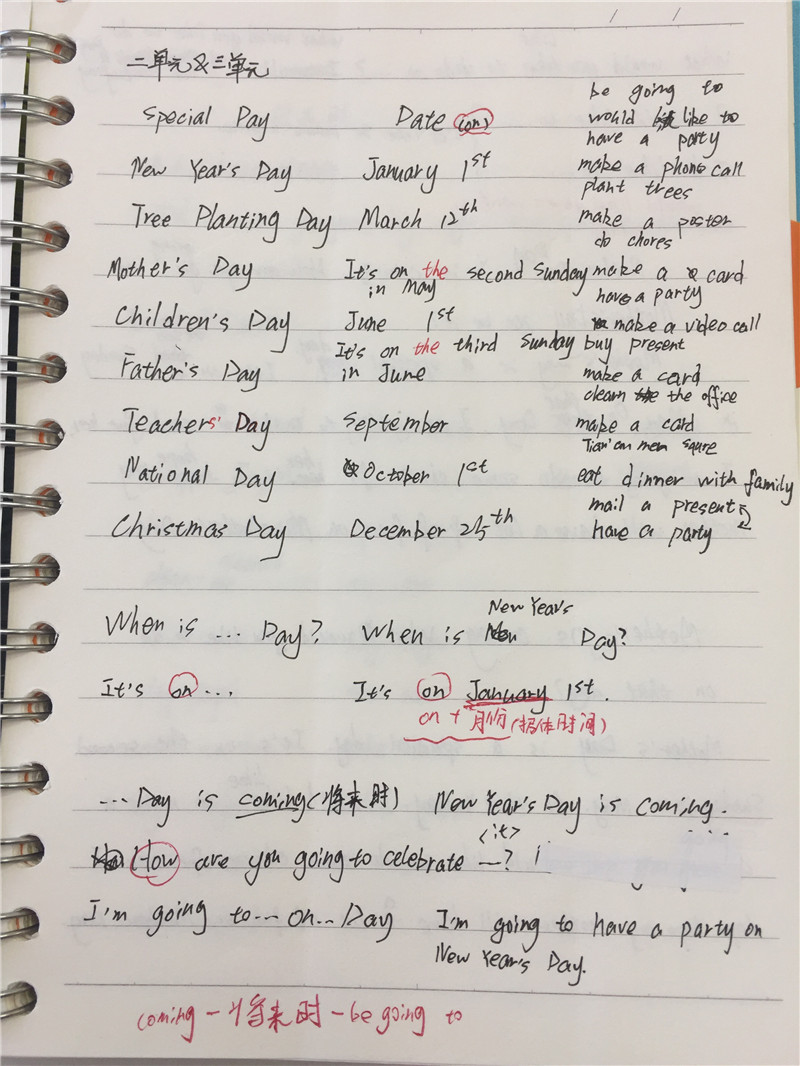 二单元&三单元
be going to
Special Day Date (on) would like to
have a party
New Year's Day January 1st make a phone call
plant trees
Tree Planting Day March 12th make a poster
do chores
Mother's Day It's on the second Sunday make a card
in May have a party
Children's Day June 1st make a video call
It's on the third Sunday buy present
Father's Day in June make a card
clearn the office
Teachers' Day September make a card
Tian'an men squre
National Day October 1st eat dinner with family
mail a present
Christmas Day December 25th have a party
New Year's
When is ... Day? When is Day?
It's on ... It's on January 1st.
on + 月份(具体时间)
... Day is coming(将来时) New Year's Day is coming.
<it>
How are you going to celebrate —?
I'm going to ... on ... Day I'm going to have a party on
New Year's Day.
coming - 将来时 - be going to